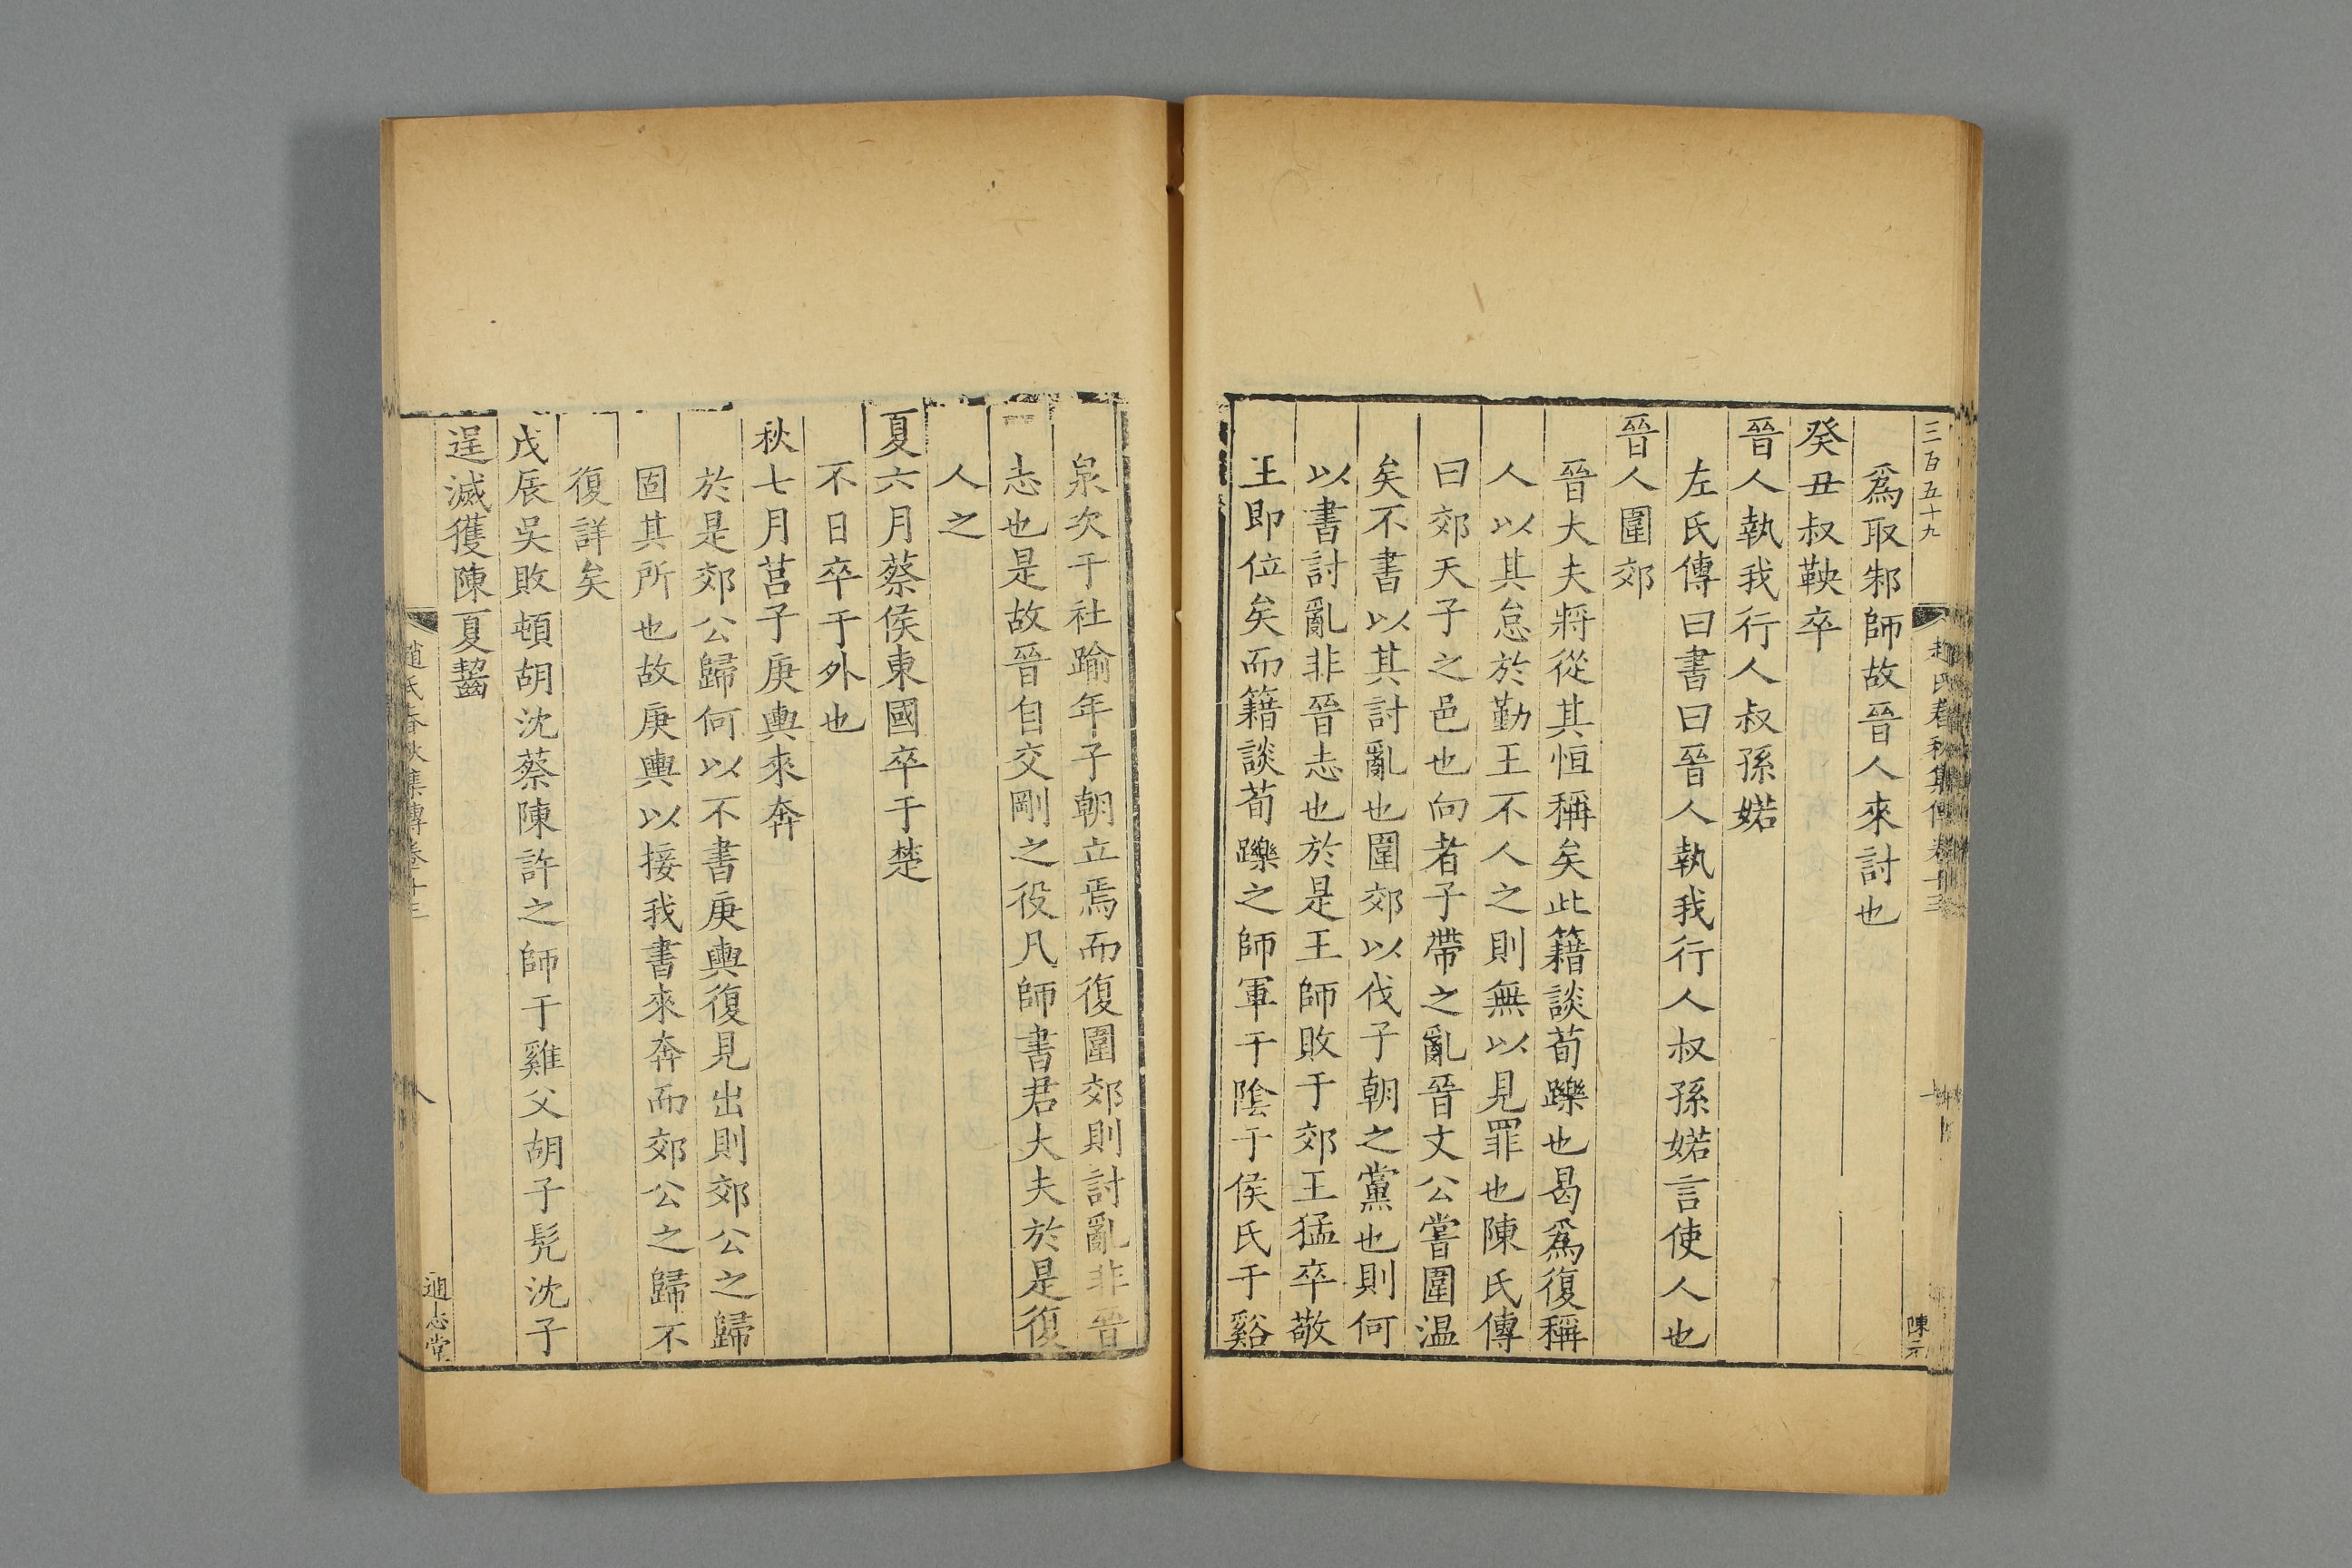 三百五十九
陳元
爲取邾師故晉人來討也
癸丑叔鞅卒
晉人執我行人叔孫婼
左氏傳曰書曰晉人執我行人叔孫婼言使人也
晉人圍郊
晉大夫將從其恒稱矣此籍談荀躒也曷爲復稱
人以其怠於勤王不人之則無以見罪也陳氏傳
曰郊天子之邑也向者子帶之亂晉文公嘗圍温
矣不書以其討亂也圍郊以伐子朝之黨也則何
以書討亂非晉志也於是王師敗于郊王猛卒敬
王即位矣而籍談荀躒之師軍于陰于侯氏于谿
泉次于社踰年子朝立焉而復圍郊則討亂非晉
志也是故晉自交剛之役凡師書君大夫於是復
人之
夏六月蔡侯東國卒于楚
不日卒于外也
秋七月莒子庚輿來奔
於是郊公歸何以不書庚輿復見出則郊公之歸
固其所也故庚輿以接我書來奔而郊公之歸不
復詳矣
戊辰吳敗頓胡沈蔡陳許之師于雞父胡子髡沈子
逞滅獲陳夏齧
趙氏春秋集傳卷十三
八
通志堂